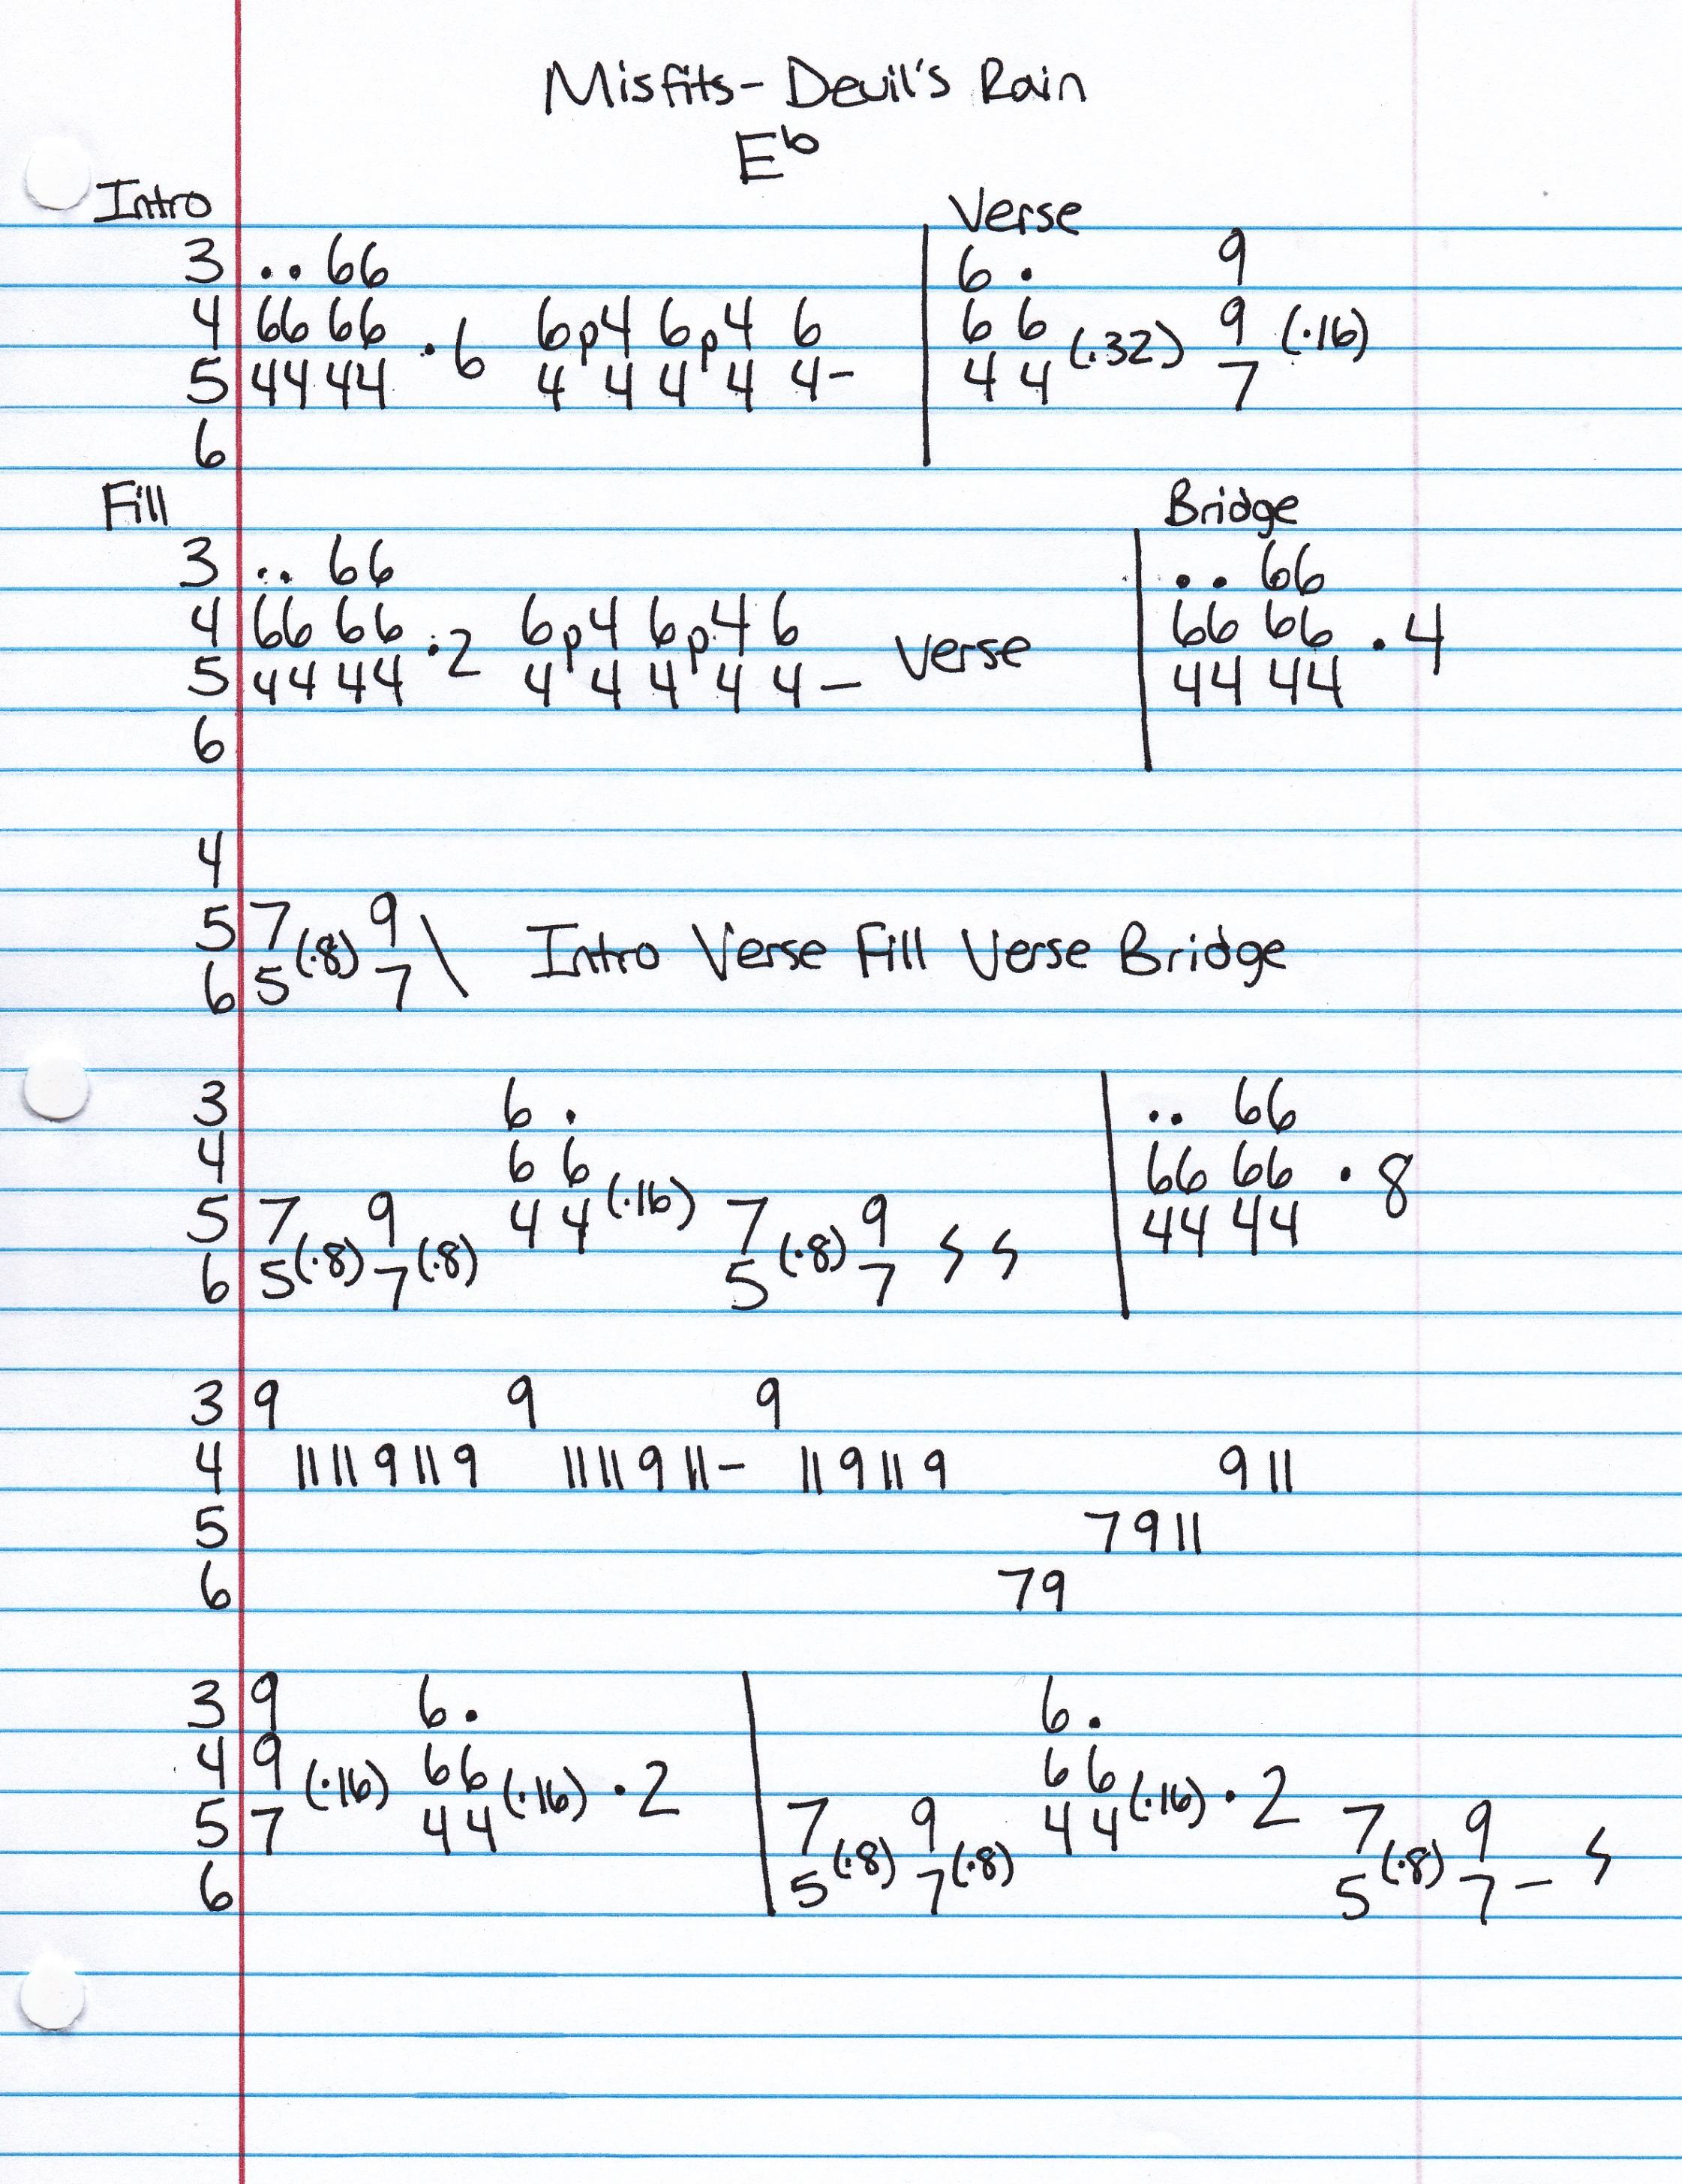 Misfits- Devil's Rain
E♭
Intro Verse
3 .. 66 6 . 9
4 66 66 ·6 6p4 6p4 6 6 6 (·32) 9 (·16)
5 44 44 4 4 4 4 4- 4 4 7
6
Fill Bridge
3 .. 66 .. 66
4 66 66 ·2 6p4 6p4 6 Verse 66 66 ·4
5 44 44 4 4 4 4 4- 44 44
6
4
5 7 (·8) 9 \ Intro Verse Fill Verse Bridge
6 5 7
3 6 . .. 66
4 6 6 66 66 ·8
5 7 9 4 4 (·16) 7 9 44 44
6 5 (·8) 7 (·8) 5 (·8) 7 𝄽 𝄽
3 9 9 9
4 11 11 9 11 9 11 11 9 11- 11 9 11 9 9 11
5 7 9 11
6 7 9
3 9 6 . 6 .
4 9 (·16) 66 (·16) ·2 6 6 (·16) ·2
5 7 44 7 9 4 4 7 9
6 5 (·8) 7 (·8) 5 (·8) 7 - 𝄽